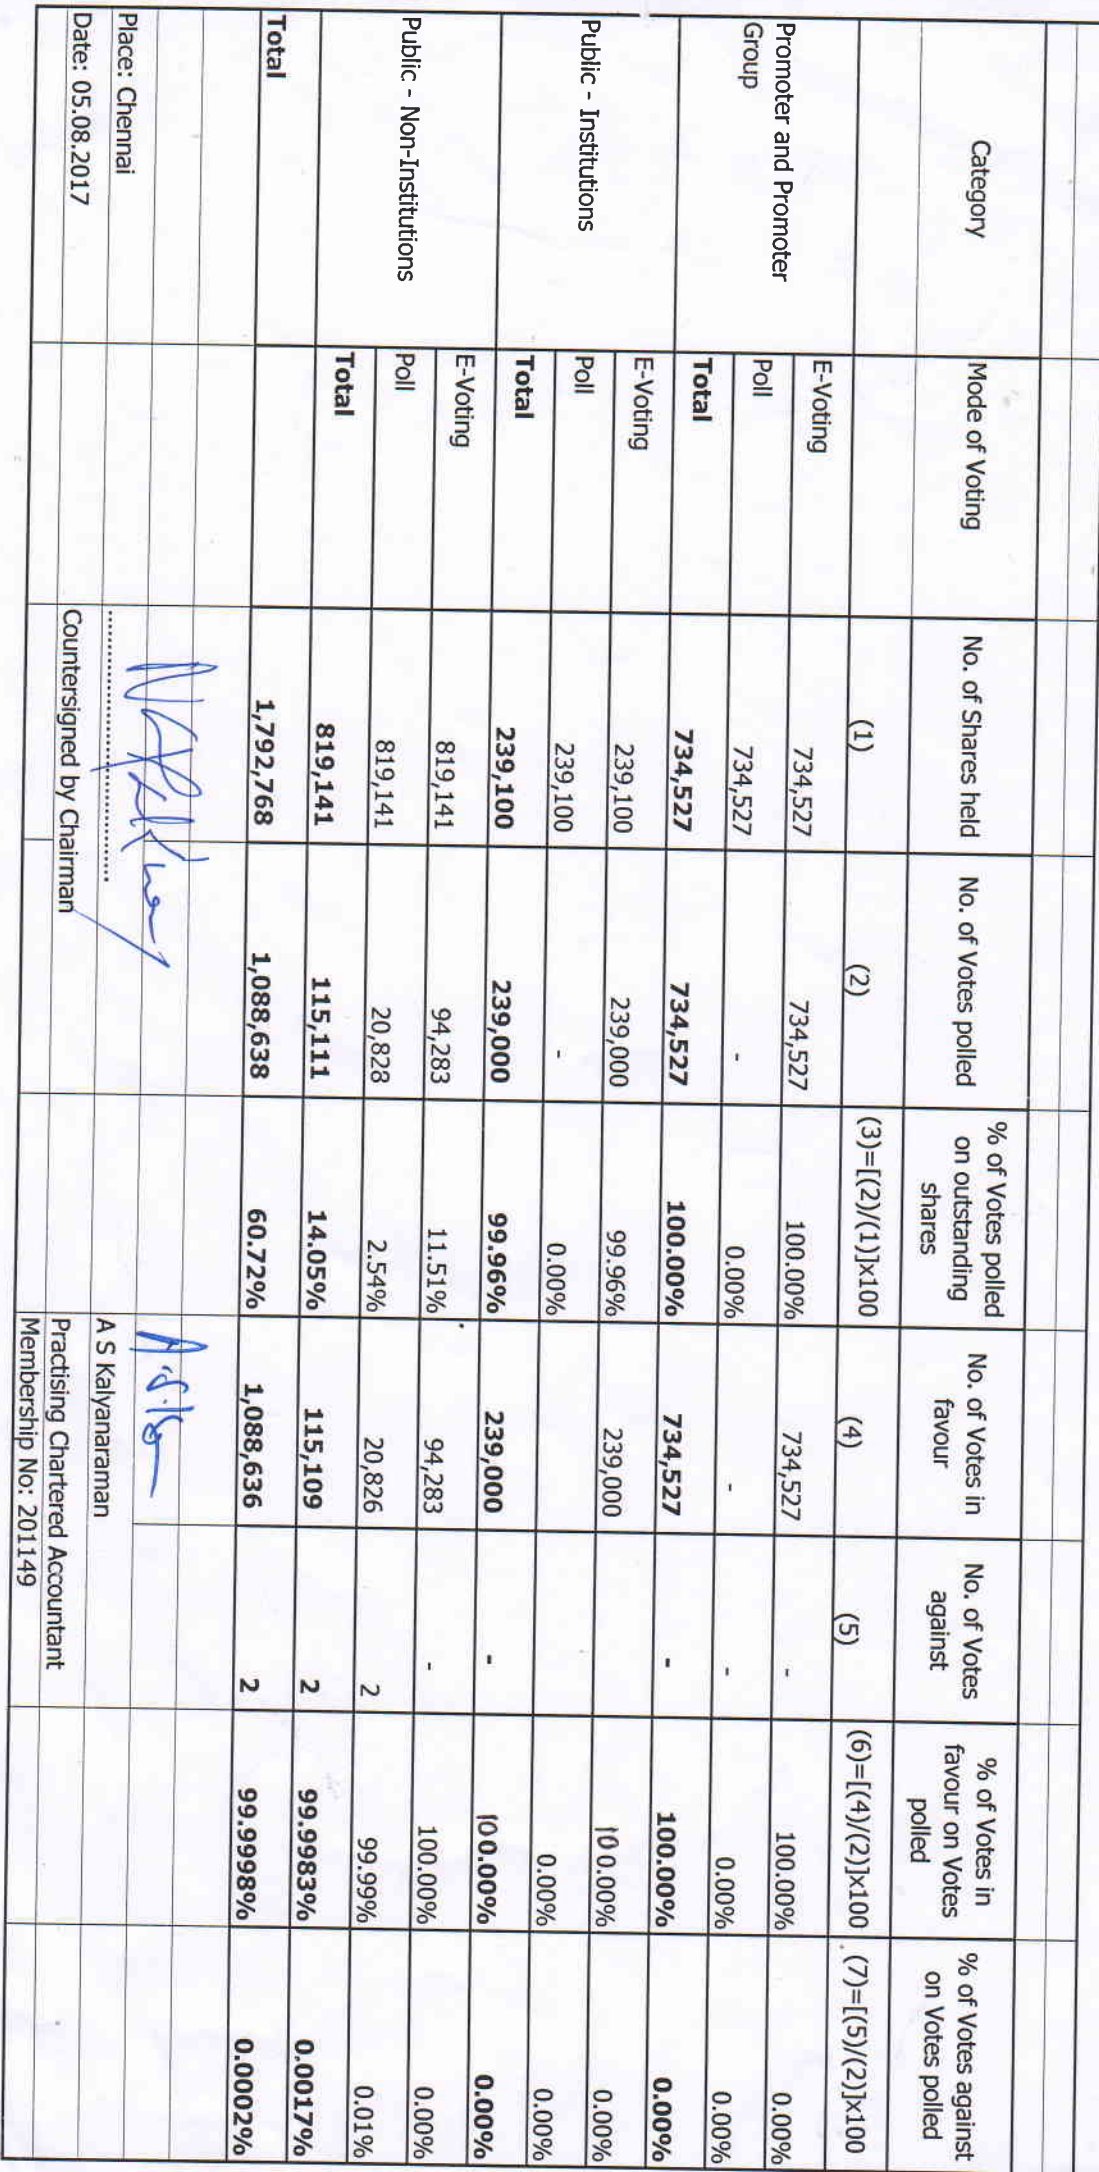 Category Mode of Voting No. of Shares held No. of Votes polled % of Votes polled on outstanding shares No. of Votes in favour No. of Votes against % of Votes in favour on Votes polled % of Votes against on Votes polled
(1) (2) (3)=[(2)/(1)]x100 (4) (5) (6)=[(4)/(2)]x100 (7)=[(5)/(2)]x100
Promoter and Promoter Group E-Voting 734,527 734,527 100.00% 734,527 - 100.00% 0.00%
Poll 734,527 - 0.00% - - 0.00% 0.00%
Total 734,527 734,527 100.00% 734,527 - 100.00% 0.00%
Public - Institutions E-Voting 239,100 239,000 99.96% 239,000 100.00% 0.00%
Poll 239,100 - 0.00% 0.00% 0.00%
Total 239,100 239,000 99.96% 239,000 - 100.00% 0.00%
Public - Non-Institutions E-Voting 819,141 94,283 11.51% 94,283 - 100.00% 0.00%
Poll 819,141 20,828 2.54% 20,826 2 99.99% 0.01%
Total 819,141 115,111 14.05% 115,109 2 99.9983% 0.0017%
Total 1,792,768 1,088,638 60.72% 1,088,636 2 99.9998% 0.0002%
Place: Chennai
A S Kalyanaraman
Date: 05.08.2017 Countersigned by Chairman Practising Chartered Accountant
Membership No: 201149